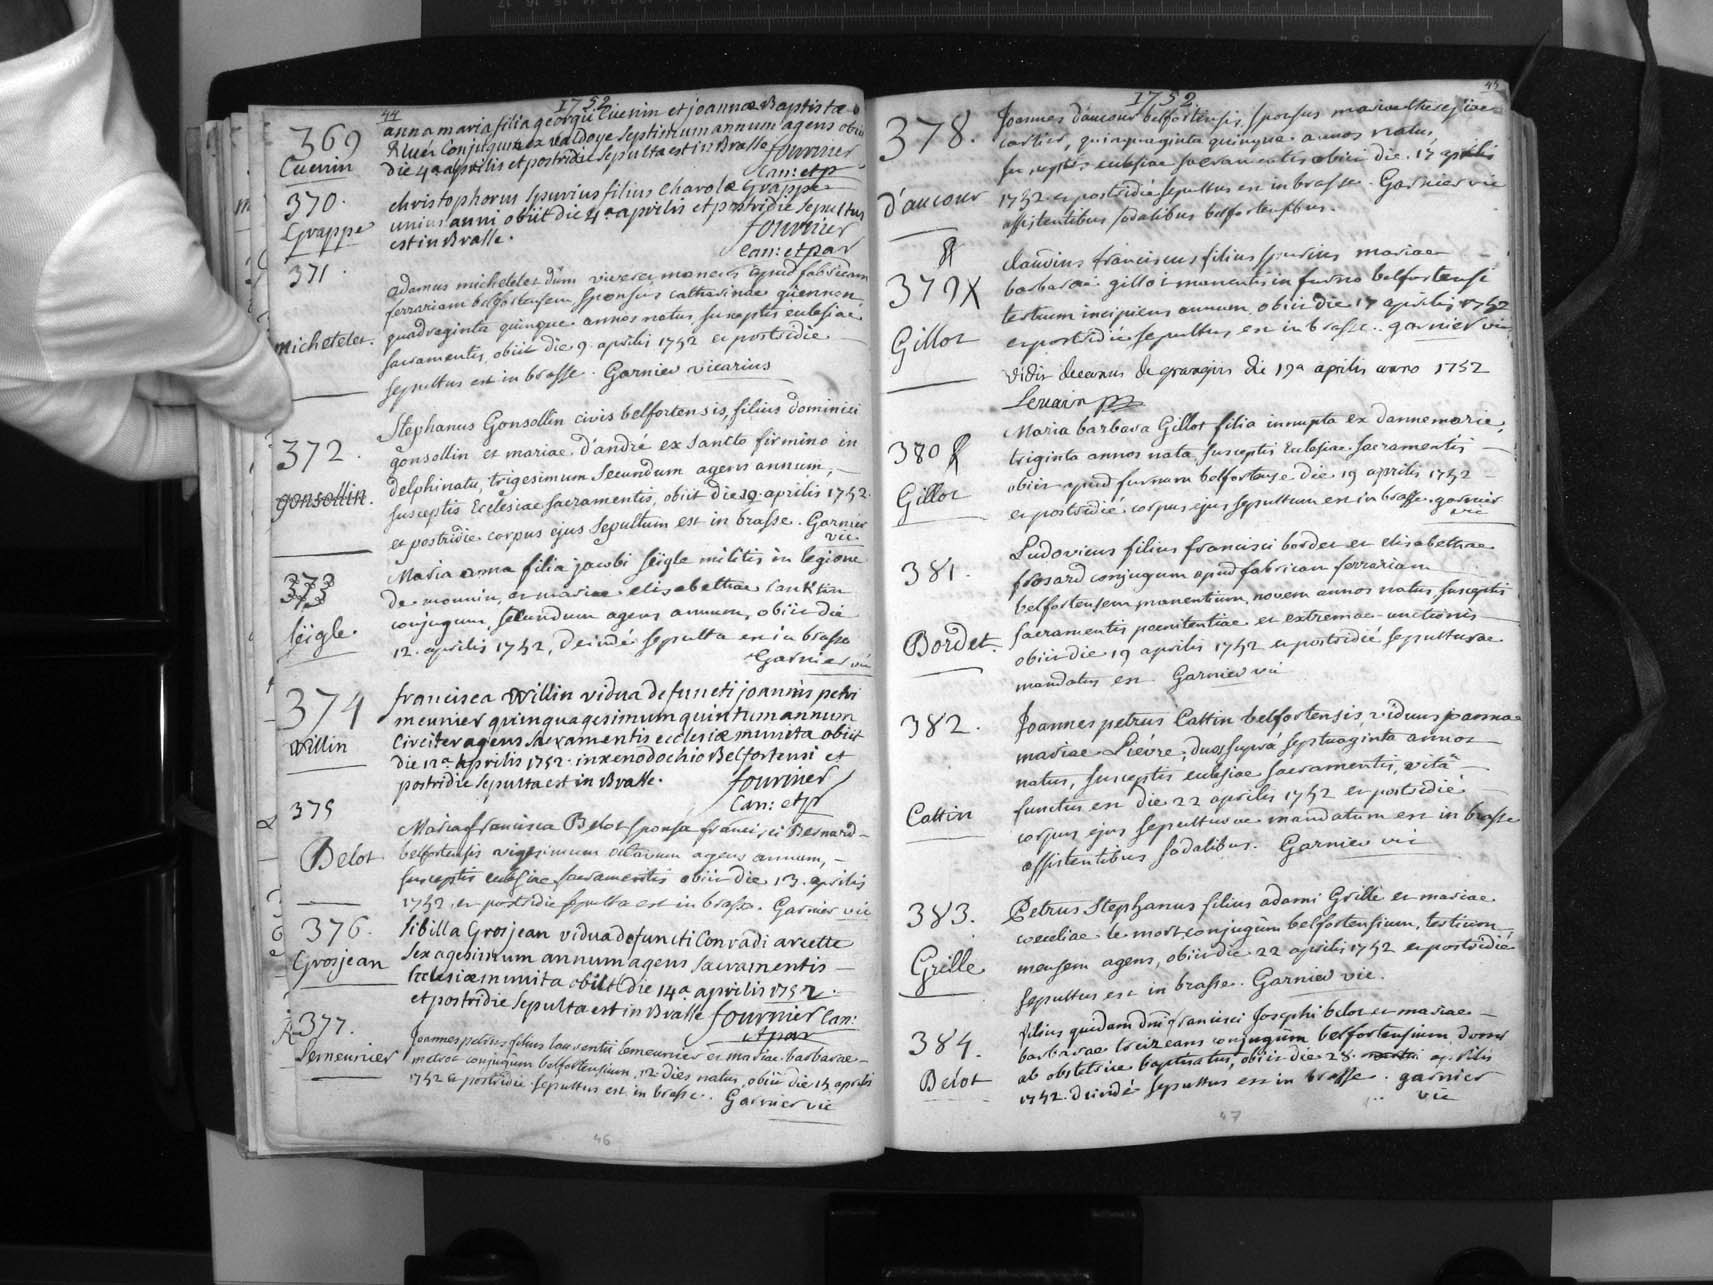 44
1752
369
Cuenin
anna maria filia georgii Cuenin et joannæ Baptistæ
Kluer Conjugum ex valDoye Septimum annum agens obiit
die 4a aprilis et postridie Sepulta est in Brasse fournier
Can: et p
370.
Grappe
christophorus Spurius filius Charolæ Grappe
unius anni obiit die 4a aprilis et postridie Sepultus
est in Brasse.
fournier
Can: et par
371.
michetelet.
adamus michetelet dum viveret manens apud fabricam
ferrariam belfortensem, Sponsus catharinae guennon,
quadraginta quinque annos natus susceptis eclesiae
sacramentis, obiit die 9. aprilis 1752 et postridie
sepultus est in brasse. Garnier vicarius
372.
gonsollin.
Stephanus Gonsollin civis belfortensis, filius dominici
gonsollin et mariae d'andré ex sancto firmino in
delphinatu, trigesimum secundum agens annum,
susceptis Ecclesiae sacramentis, obiit die 19. aprilis 1752.
et postridie corpus ejus sepultum est in brasse. Garnier
vic
373
seigle
Maria anna filia jacobi seigle militis in legione
de monnin, et mariae elisabethae
conjugum, secundum agens annum, obiit die
12. aprilis 1752, deindé sepulta est in brasse
Garnier vic
374
willin
francisca willin vidua defuncti joannis petri
meunier quinquagesimum quintum annum
Circiter agens sacramentis ecclesiæ munita obiit
die 12a aprilis 1752. in xenodochio Belfortensi et
postridie Sepulta est in Brasse.
fournier
Can: et p
375
Belot
Maria francisca Belot sponsa francisci Bernard
belfortensis vigesimum octavum agens annum,
susceptis eclesiae sacramentis obiit die 13. aprilis
1752, et postridie sepulta est in brasse. Garnier vic
376.
Grosjean
Sibilla Grosjean vidua defuncti Conradi arcette
Sexagesimum annum agens sacramentis
Ecclesiæ munita obiit die 14a aprilis 1752.
et postridie Sepulta est in Brasse fournier Can:
et par
377.
Lemeunier
Joannes petrus filius laurentii lemeunier et mariae barbarae
metrot conjugum belfortensium, 12 dies natus, obiit die 15 aprilis
1752 et postridie sepultus est in brasse. Garnier vic
46
45
1752
378.
d'aucour
Joannes d'aucour belfortensis, sponsus mariae theresiae
cartier, quinquaginta quinque annos natus,
susceptis eclesiae sacramentis obiit die 17 aprilis
1752 et postridié sepultus est in brasse. Garnier vic
assistentibus sodalibus belfortensibus.
379 X
Gillot
claudius franciscus filius spurius mariae
barbarae gillot manentis in furno belfortensi
tertium incipiens annum, obiit die 17 aprilis 1752
et postridié sepultus est in brasse. garnier vic
Vidit decanus de grangiis die 19a aprilis anno 1752
380
Gillot
Maria barbara Gillot filia innupta ex dannemarie,
triginta annos nata, susceptis Eclesiae sacramentis
obiit apud furnum belfortense die 19 aprilis 1752
et postridié corpus ejus sepultum est in brasse. garnier
vic
381.
Bordet.
Ludovicus filius francisci bordet et elisabethae
frosard conjugum apud fabricam ferrariam
belfortensem manentium, novem annos natus, susceptis
sacramentis poenitentiae et extremae-unctionis
obiit die 19 aprilis 1752 et postridié sepulturae
mandatus est Garnier vic
382.
Cattin
Joannes petrus Cattin belfortensis, viduus joannae
mariae Lièvre, duos suprà septuaginta annos
natus, susceptis eclesiae sacramentis, vitâ
functus est die 22 aprilis 1752 et postridié
corpus ejus sepulturae mandatum est in brasse
assistentibus sodalibus. Garnier vic
383.
Grille
Petrus Stephanus filius adami Grille et mariae
ceciliae le mort conjugum belfortensium, tertium
mensem agens, obiit die 22 aprilis 1752 et postridié
sepultus est in brasse. Garnier vic.
384.
Belot
filius quidam dni francisci Josephi belot et mariae
barbarae treizeans conjugum belfortensium, domi
ab obstetrice baptisatus, obiit die 28. aprilis
1752. deindé sepultus est in brasse. garnier
vic
47